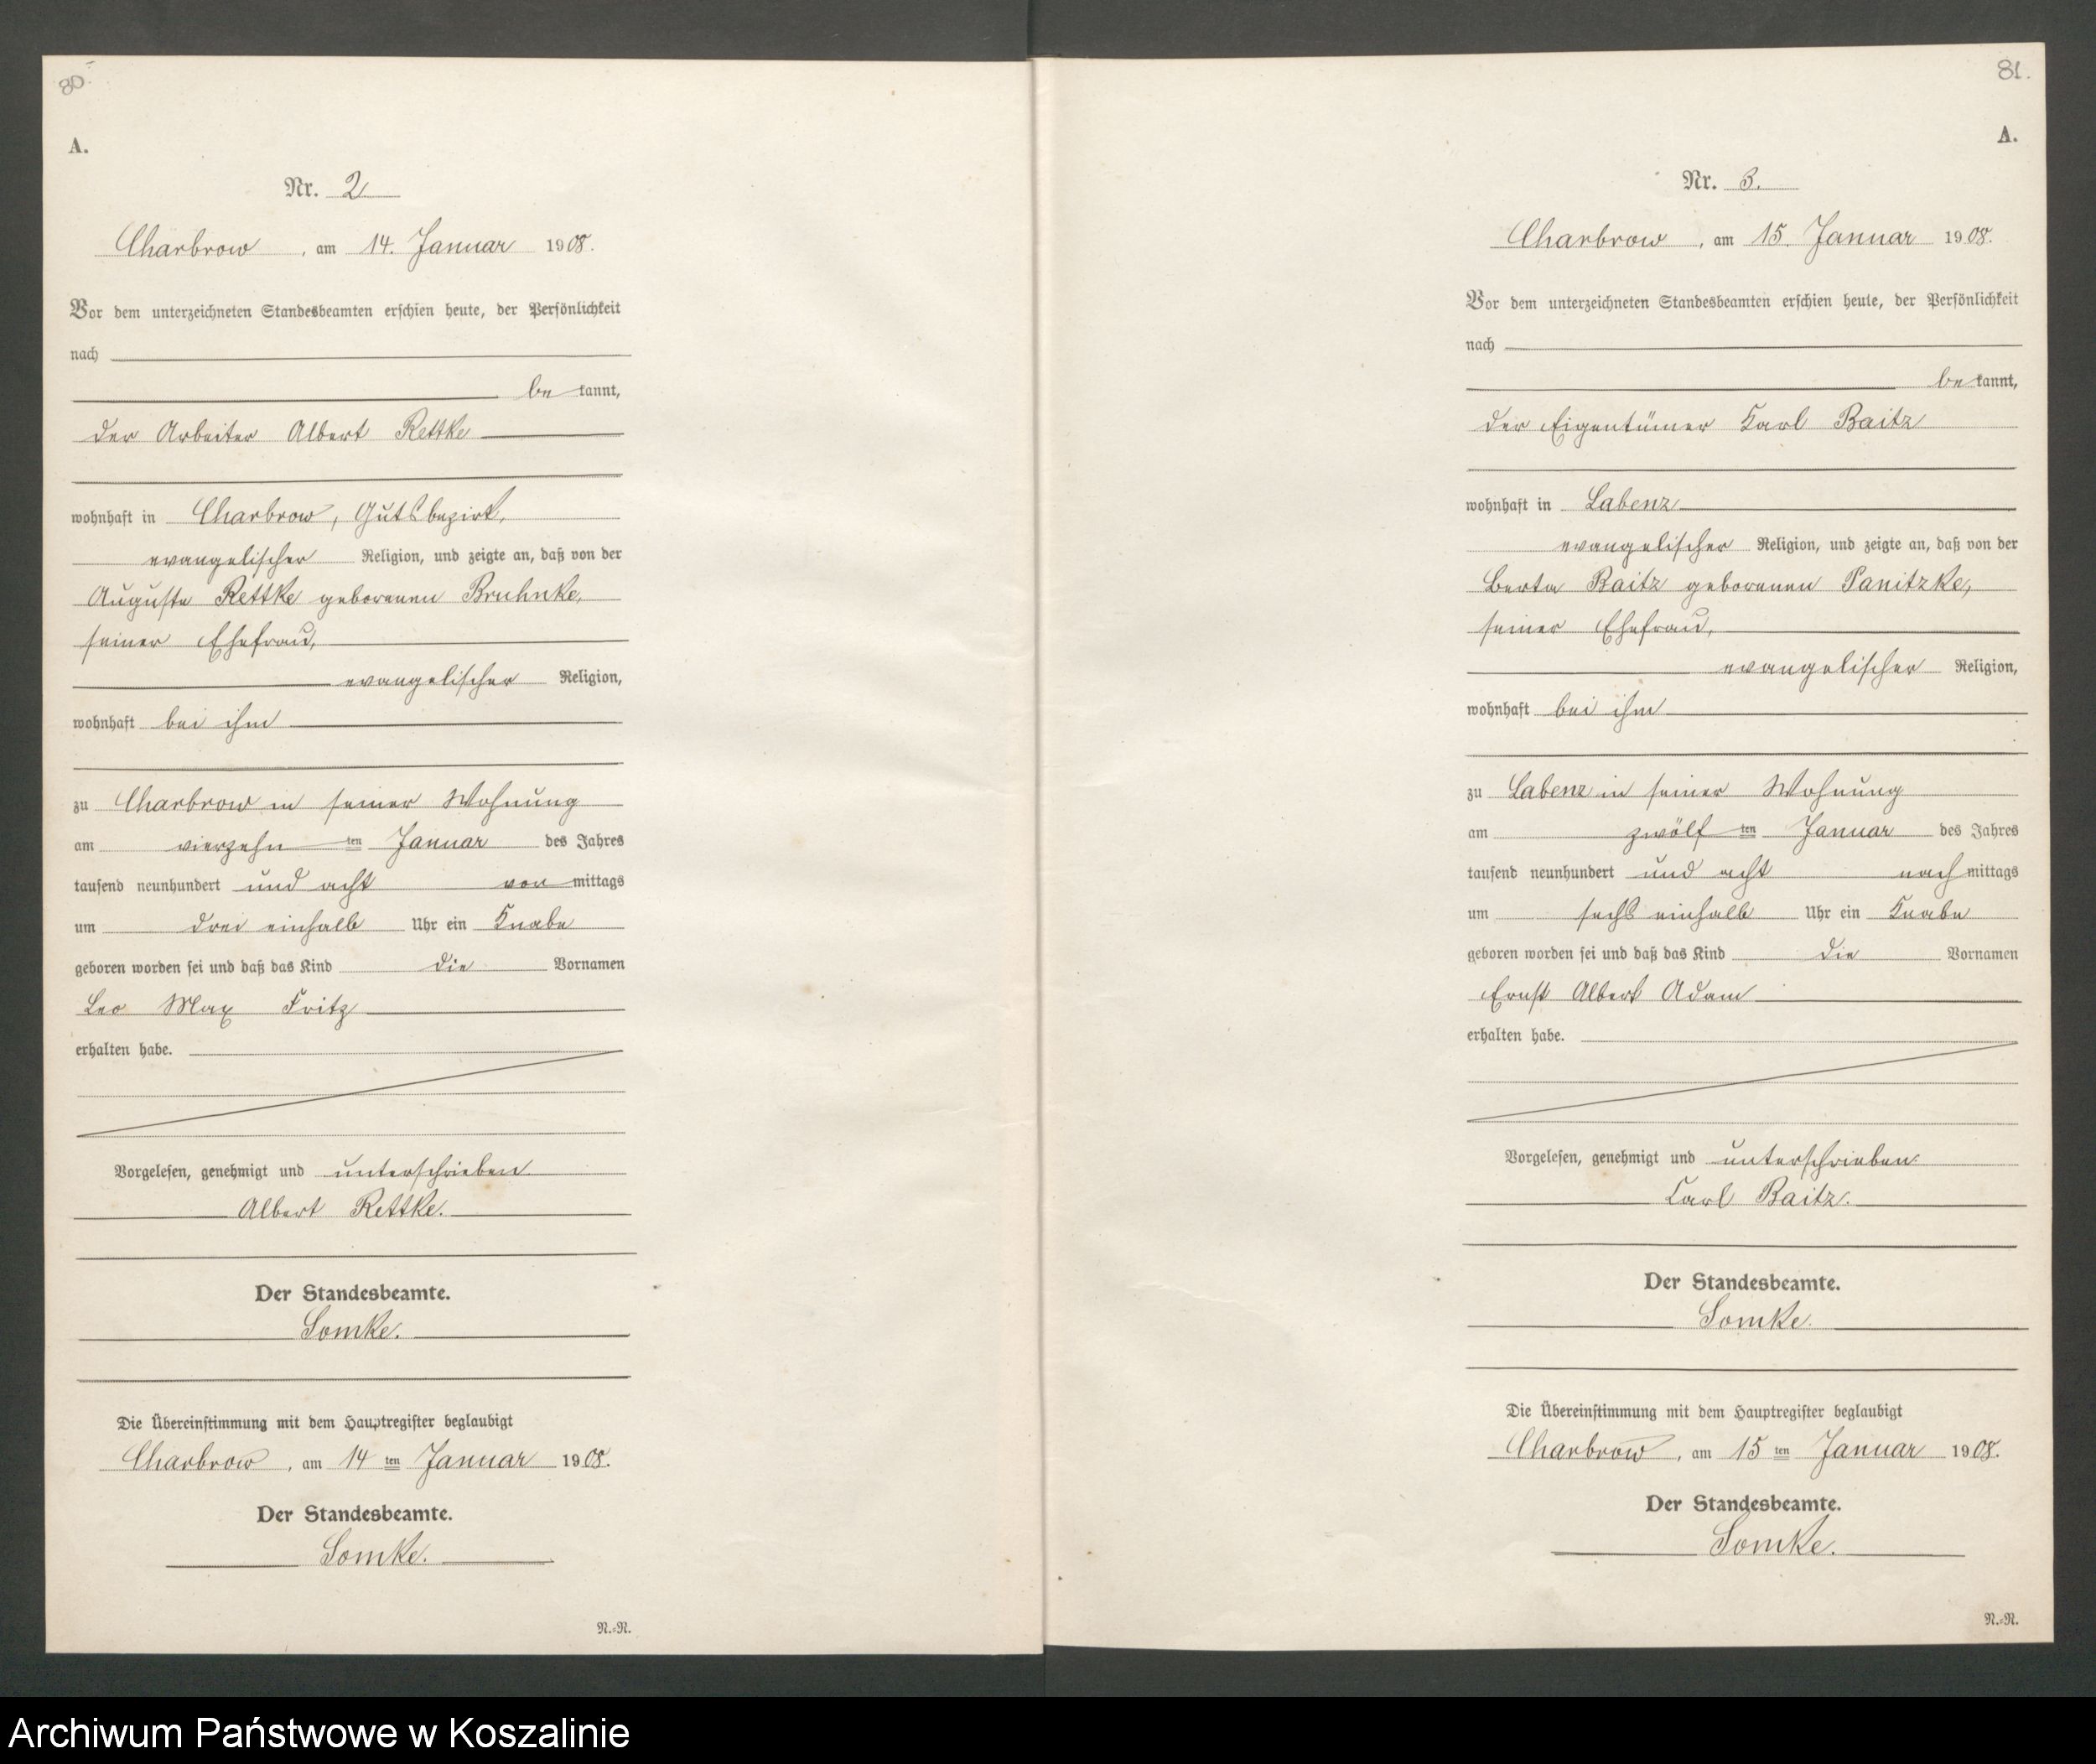 80.
A.
Nr. 2
Charbrow, am 14. Januar 1908.
Vor dem unterzeichneten Standesbeamten erschien heute, der Persönlichkeit
nach
bekannt,
der Arbeiter Albert Rettke
wohnhaft in Charbrow, Gutsbezirk,
evangelischer Religion, und zeigte an, daß von der
Auguste Rettke geborenen Bruhnke,
seiner Ehefrau,
evangelischer Religion,
wohnhaft bei ihm
zu Charbrow in seiner Wohnung
am vierzehnten Januar des Jahres
tausend neunhundert und acht vormittags
um drei einhalb Uhr ein Knabe
geboren worden sei und daß das Kind die Vornamen
Leo Max Fritz
erhalten habe.
Vorgelesen, genehmigt und unterschrieben
Albert Rettke.
Der Standesbeamte.
Somke.
Die Übereinstimmung mit dem Hauptregister beglaubigt
Charbrow, am 14ten Januar 1908.
Der Standesbeamte.
Somke.
N.-N.
81.
A.
Nr. 3.
Charbrow, am 15. Januar 1908.
Vor dem unterzeichneten Standesbeamten erschien heute, der Persönlichkeit
nach
bekannt,
der Eigentümer Karl Baitz
wohnhaft in Labenz
evangelischer Religion, und zeigte an, daß von der
Berta Baitz geborenen Panitzke,
seiner Ehefrau,
evangelischer Religion,
wohnhaft bei ihm
zu Labenz in seiner Wohnung
am zwölften Januar des Jahres
tausend neunhundert und acht nachmittags
um sechs einhalb Uhr ein Knabe
geboren worden sei und daß das Kind die Vornamen
Ernst Albert Adam
erhalten habe.
Vorgelesen, genehmigt und unterschrieben.
Carl Baitz.
Der Standesbeamte.
Somke.
Die Übereinstimmung mit dem Hauptregister beglaubigt
Charbrow, am 15ten Januar 1908.
Der Standesbeamte.
Somke.
N.-N.
Archiwum Państwowe w Koszalinie